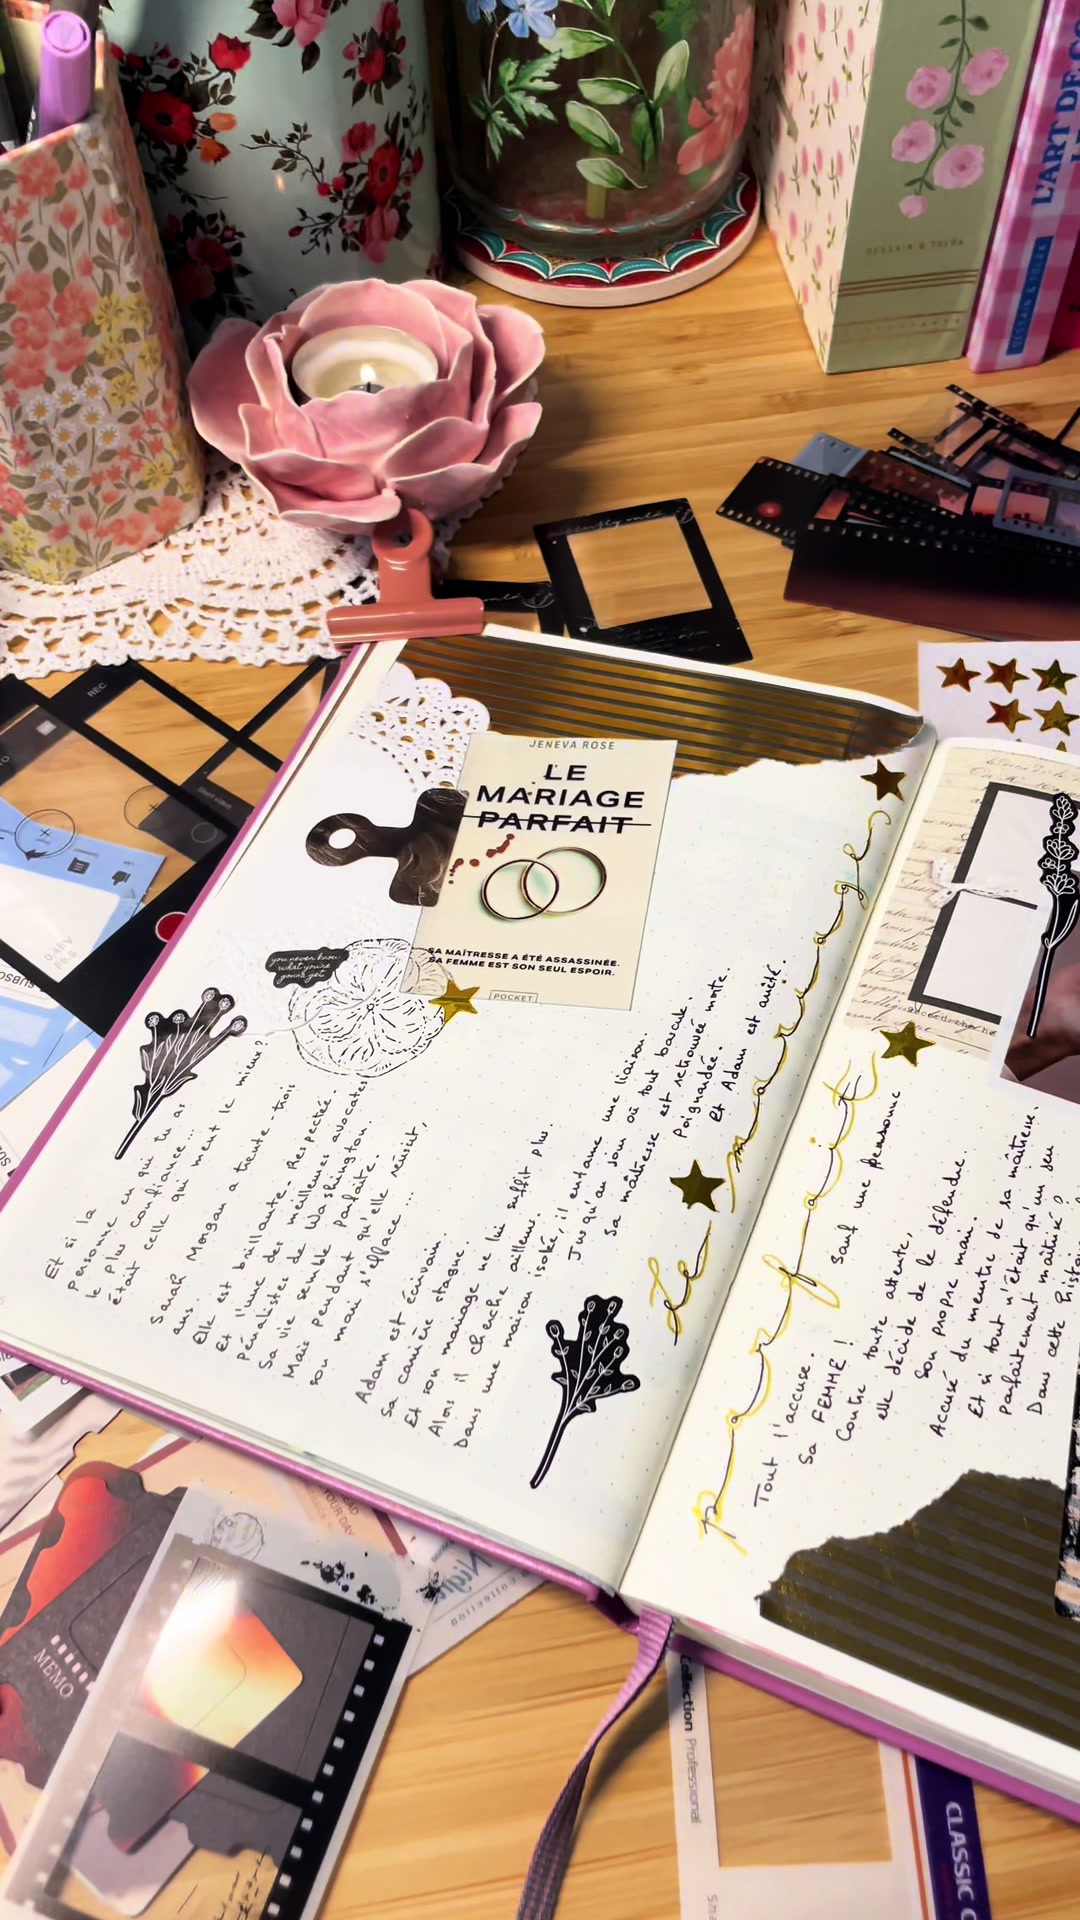 L'ART DE CO
DESSAIN & TOLRA
DESSAIN & TOLRA
REC
Short video
JENEVA ROSE
LE
MARIAGE
PARFAIT
SA MAÎTRESSE A ÉTÉ ASSASSINÉE.
SA FEMME EST SON SEUL ESPOIR.
POCKET
you never know
what you're
gonna get
Et si la
personne en qui tu as
le plus confiance...
était celle qui ment le mieux?
Sarah Morgan a trente-trois
ans.
Elle est brillante. Respectée.
Et l'une des meilleures avocates
pénalistes de Washington.
Sa vie semble parfaite.
Mais pendant qu'elle réussit,
son mari s'efface...
Adam est écrivain.
Sa carrière stagne.
Et son mariage ne lui suffit plus.
Alors il cherche ailleurs.
Dans une maison isolée, il entame une liaison.
Jusqu'au jour où tout bascule.
Sa maîtresse est retrouvée morte.
Poignardée.
Et Adam est arrêté.
Le mariage
parfait
Tout l'accuse. Sauf une personne
Sa FEMME !
Contre toute attente,
elle décide de le défendre.
Son propre mari.
Accusé du meurtre de sa maîtresse.
Et si tout n'était qu'un jeu
parfaitement maîtrisé ?
Dans cette histoire
MEMO
YOUR DAY
collection
Collection Professional
CLASSIC